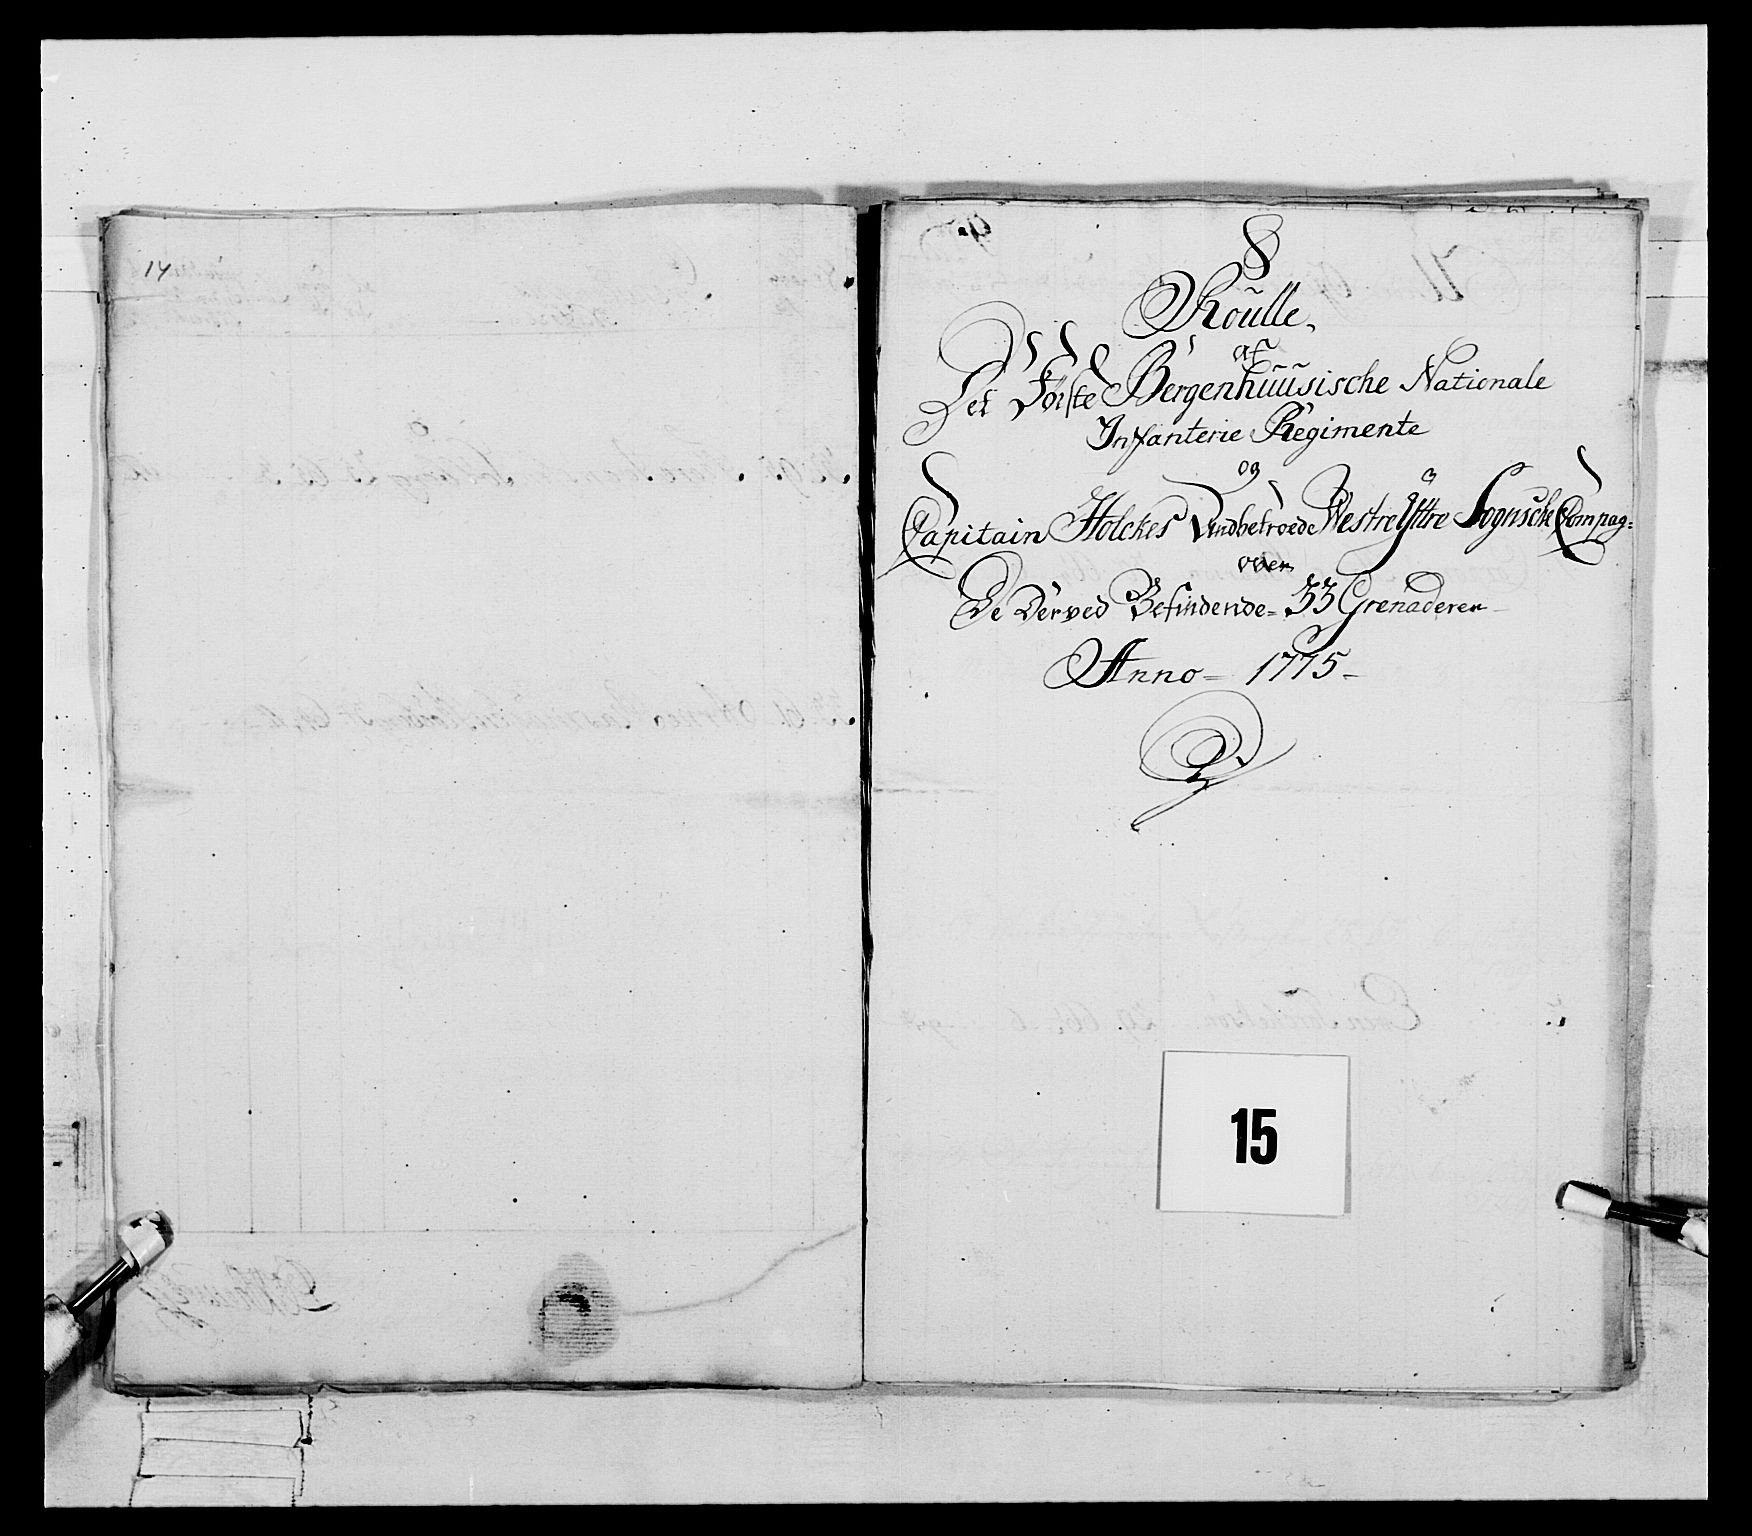 14
Roulle,
af
Det Förste Bergenhuusische Nationale
Infanterie Regimente
og
Capitain Holckes Undbetroede Westre Yttre Sognsche Compag:
over
De Derved Befindende= 33 Grenaderer
Anno= 1775-
15